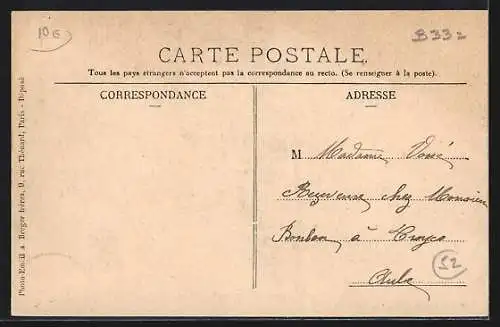 10 G
B332
CARTE POSTALE.
Tous les pays étrangers n'acceptent pas la correspondance au recto. (Se renseigner à la poste).
CORRESPONDANCE
ADRESSE
M Madame
chez Monsieur
Bonbon à Troyes
Aube
52
Berger frères, 9, rue Thénard, Paris - Déposé